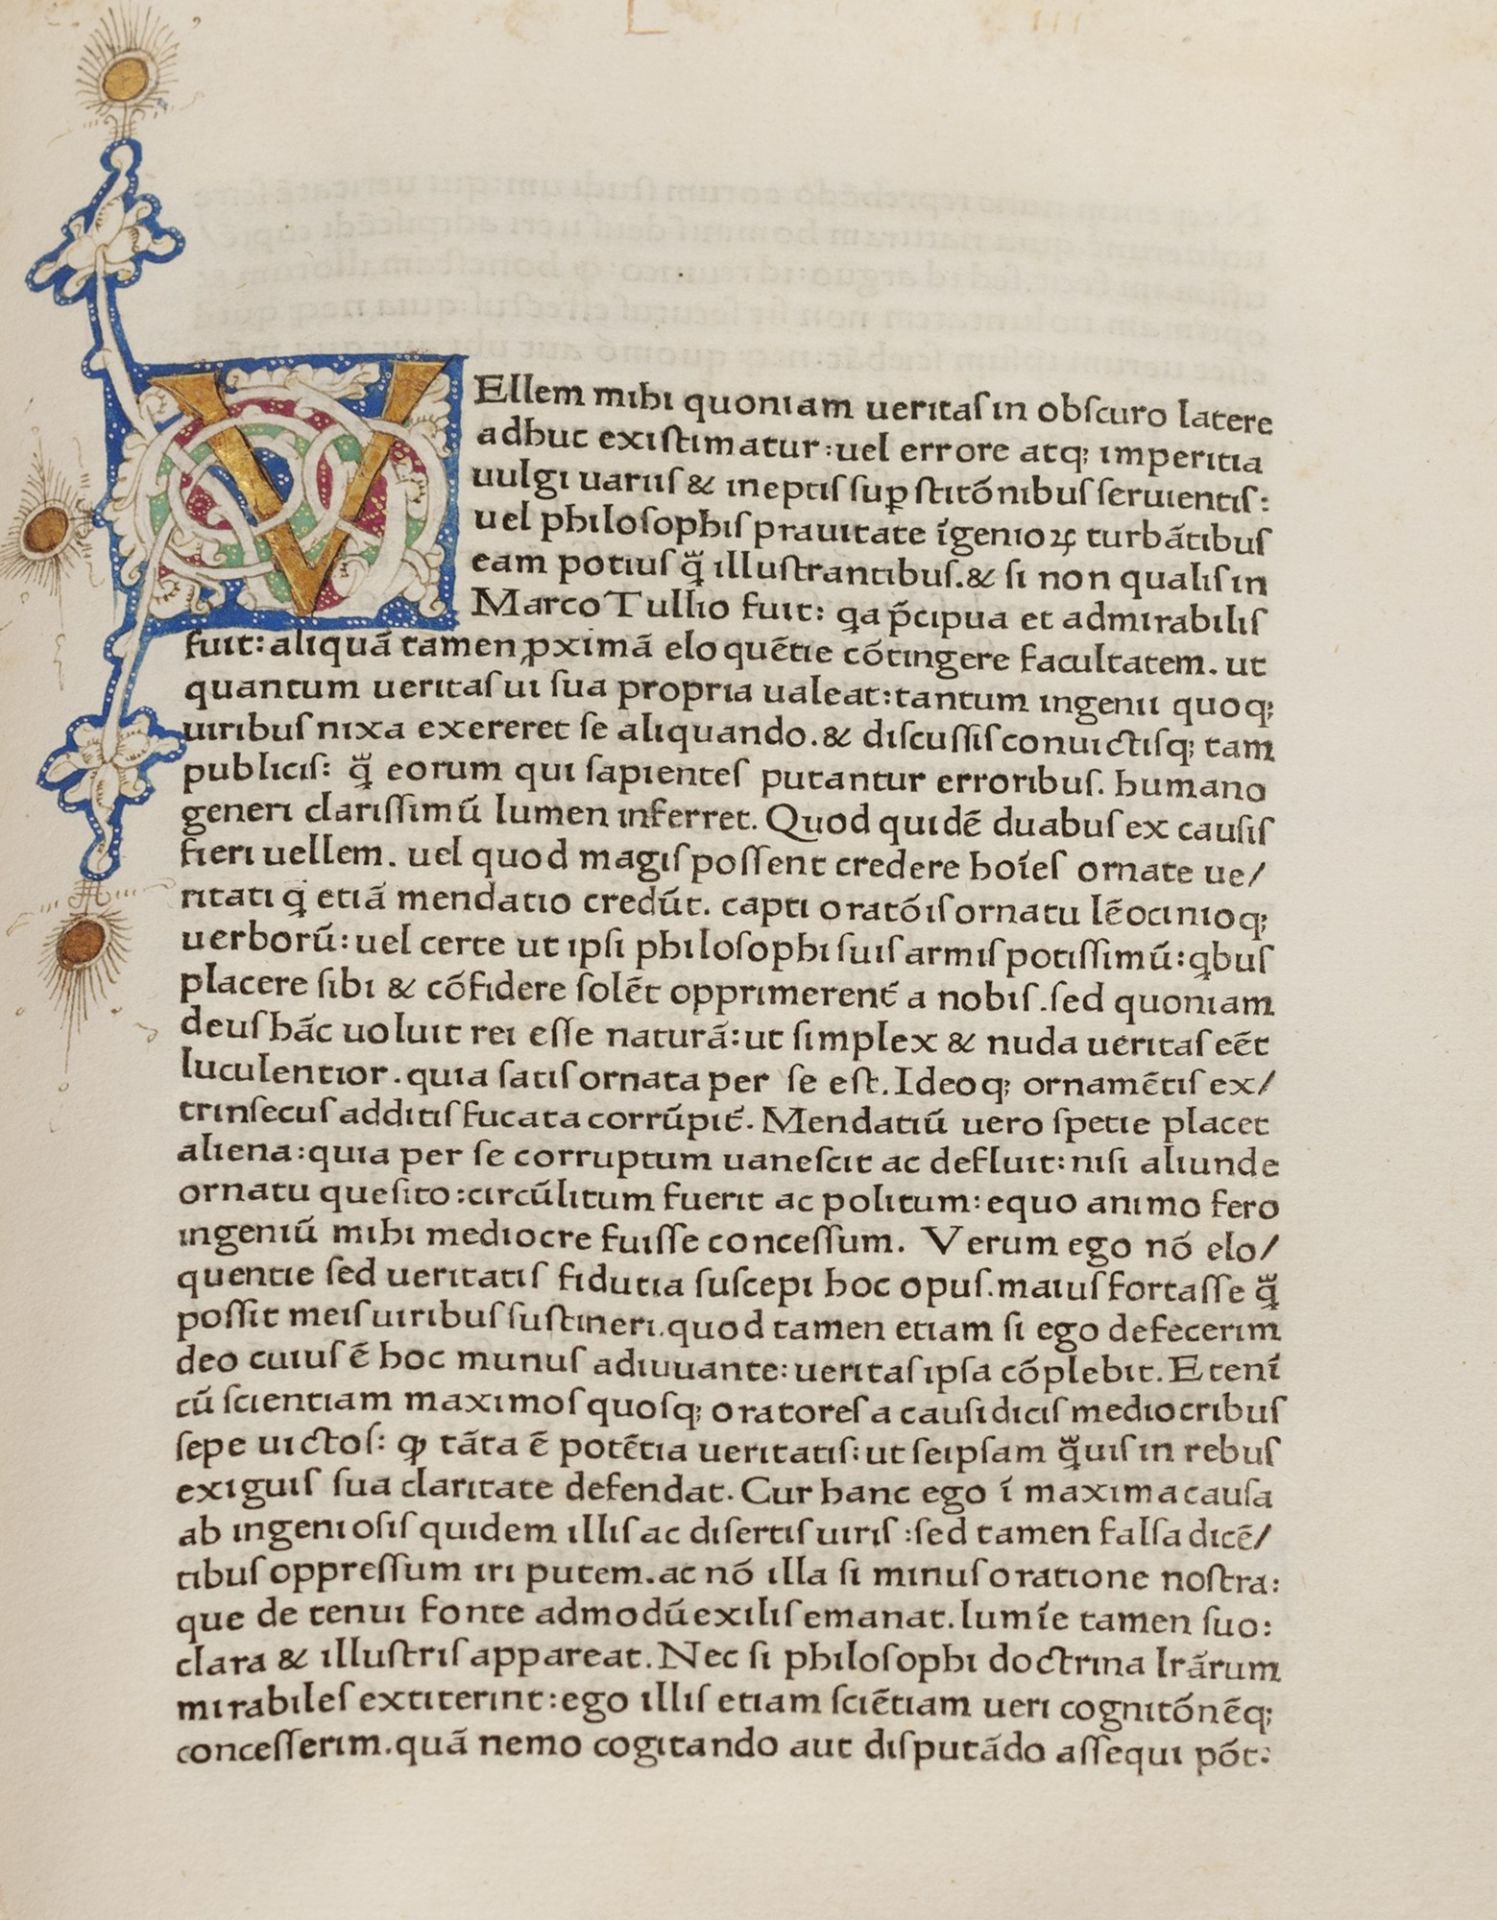 VEllem mihi quoniam ueritaſ in obſcuro latere
adhuc exiſtimatur: uel errore atq; imperitia
uulgi uariiſ & ineptiſ suꝑſtitõnibuſ ſeruientiſ:
uel philoſophiſ prauitate ĩgenioꝝ turbãtibuſ
eam potiuſ q̃ illuſtrantibuſ. & ſi non qualiſ in
Marco Tullio fuit: qa p̃cipua et admirabiliſ
fuit: aliquã tamen ꝓximã eloquẽtie cõtingere facultatem. ut
quantum ueritaſ ui ſua propria ualeat: tantum ingenii quoq;
uiribuſ nixa exereret ſe aliquando. & diſcuſſiſ conuictiſq; tam
publiciſ: q̃ eorum qui ſapienteſ putantur erroribuſ. humano
generi clariſſimũ lumen inferret. Quod quidẽ duabuſ ex cauſiſ
fieri uellem. uel quod magiſ poſſent credere hoĩeſ ornate ue/
ritati q̇ etiã mendatio credũt. capti oratõiſ ornatu lẽocinioq;
uerborũ: uel certe ut ipſi philoſophi ſuiſ armiſ potiſſimũ: qbuſ
placere ſibi & cõfidere ſolẽt opprimerent̃ a nobiſ. ſed quoniam
deuſ hãc uoluit rei eſſe naturã: ut ſimplex & nuda ueritaſ eẽt
luculentior. quia ſatiſ ornata per ſe eſt. Ideoq; ornamẽtiſ ex/
trinſecuſ additiſ fucata corrũpit̃. Mendatiũ uero ſpetie placet
aliena: quia per ſe corruptum uaneſcit ac defluit: niſi aliunde
ornatu queſito: circũlitum fuerit ac politum: equo animo fero
ingeniũ mihi mediocre fuiſſe conceſſum. Verum ego nõ elo/
quentie ſed ueritatiſ fidutia ſuſcepi hoc opuſ. maiuſ fortaſſe q̃
poſſit meiſ uiribuſ ſuſtineri. quod tamen etiam ſi ego defecerim
deo cuiuſ ẽ hoc munuſ adiuuante: ueritaſ ipſa cõplebit. Etenĩ
cũ ſcientiam maximoſ quoſq; oratoreſ a cauſidiciſ mediocribuſ
ſepe uictoſ: ꝙ tãta ẽ potẽtia ueritatiſ: ut ſeipſam q̃uiſ in rebuſ
exiguiſ ſua claritate defendat. Cur hanc ego ĩ maxima cauſa
ab ingenioſiſ quidem illiſ ac diſertiſ uiriſ: ſed tamen falſa dicẽ/
tibuſ oppreſſum iri putem. ac nõ illa ſi minuſ oratione noſtra:
que de tenui fonte admodũ exiliſ emanat. lumĩe tamen ſuo:
clara & illuſtriſ appareat. Nec ſi philoſophi doctrina lrãrum
mirabileſ extiterint: ego illiſ etiam ſciẽtiam ueri cognitõnẽq;
conceſſerim. quã nemo cogitando aut diſputãdo aſſequi põt: